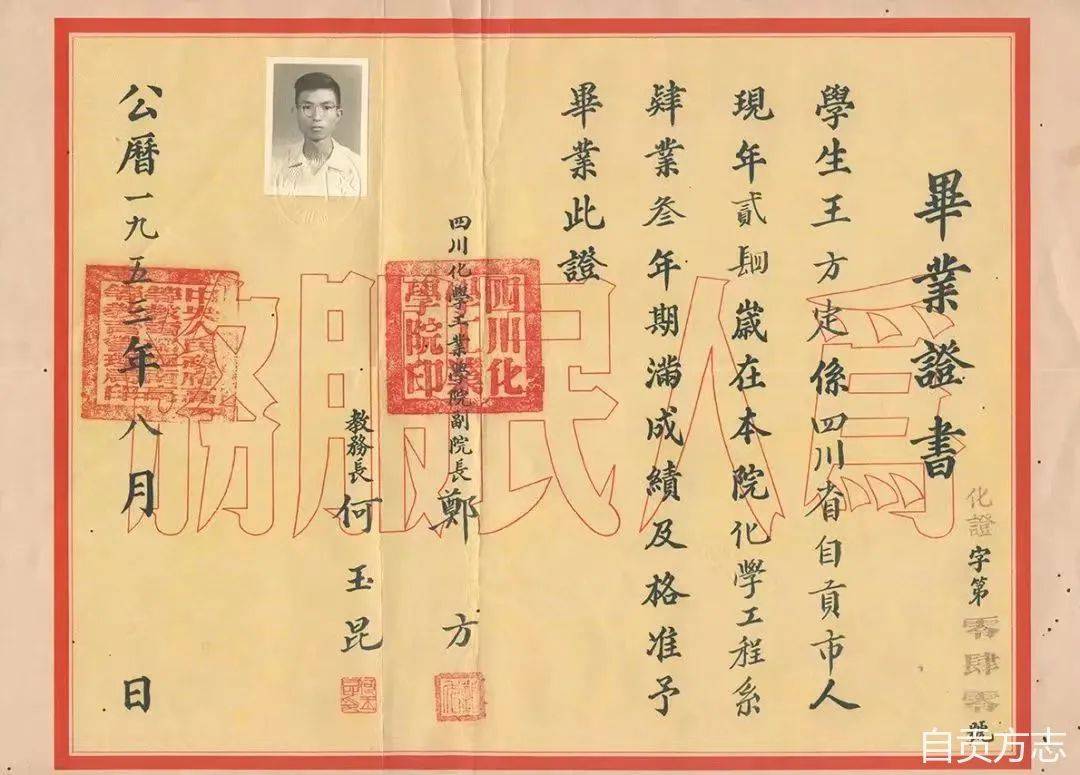 畢業證書
化證字第零肆零號
學生王方定係四川省自貢市人
現年貳肆歲在本院化學工程系
肄業叁年期滿成績及格准予
畢業此證
四川化學工業學院副院長 鄭方
教務長 何玉昆
公曆一九五三年八月 日
爲人民服務
四川化學工業學院印
自贡方志